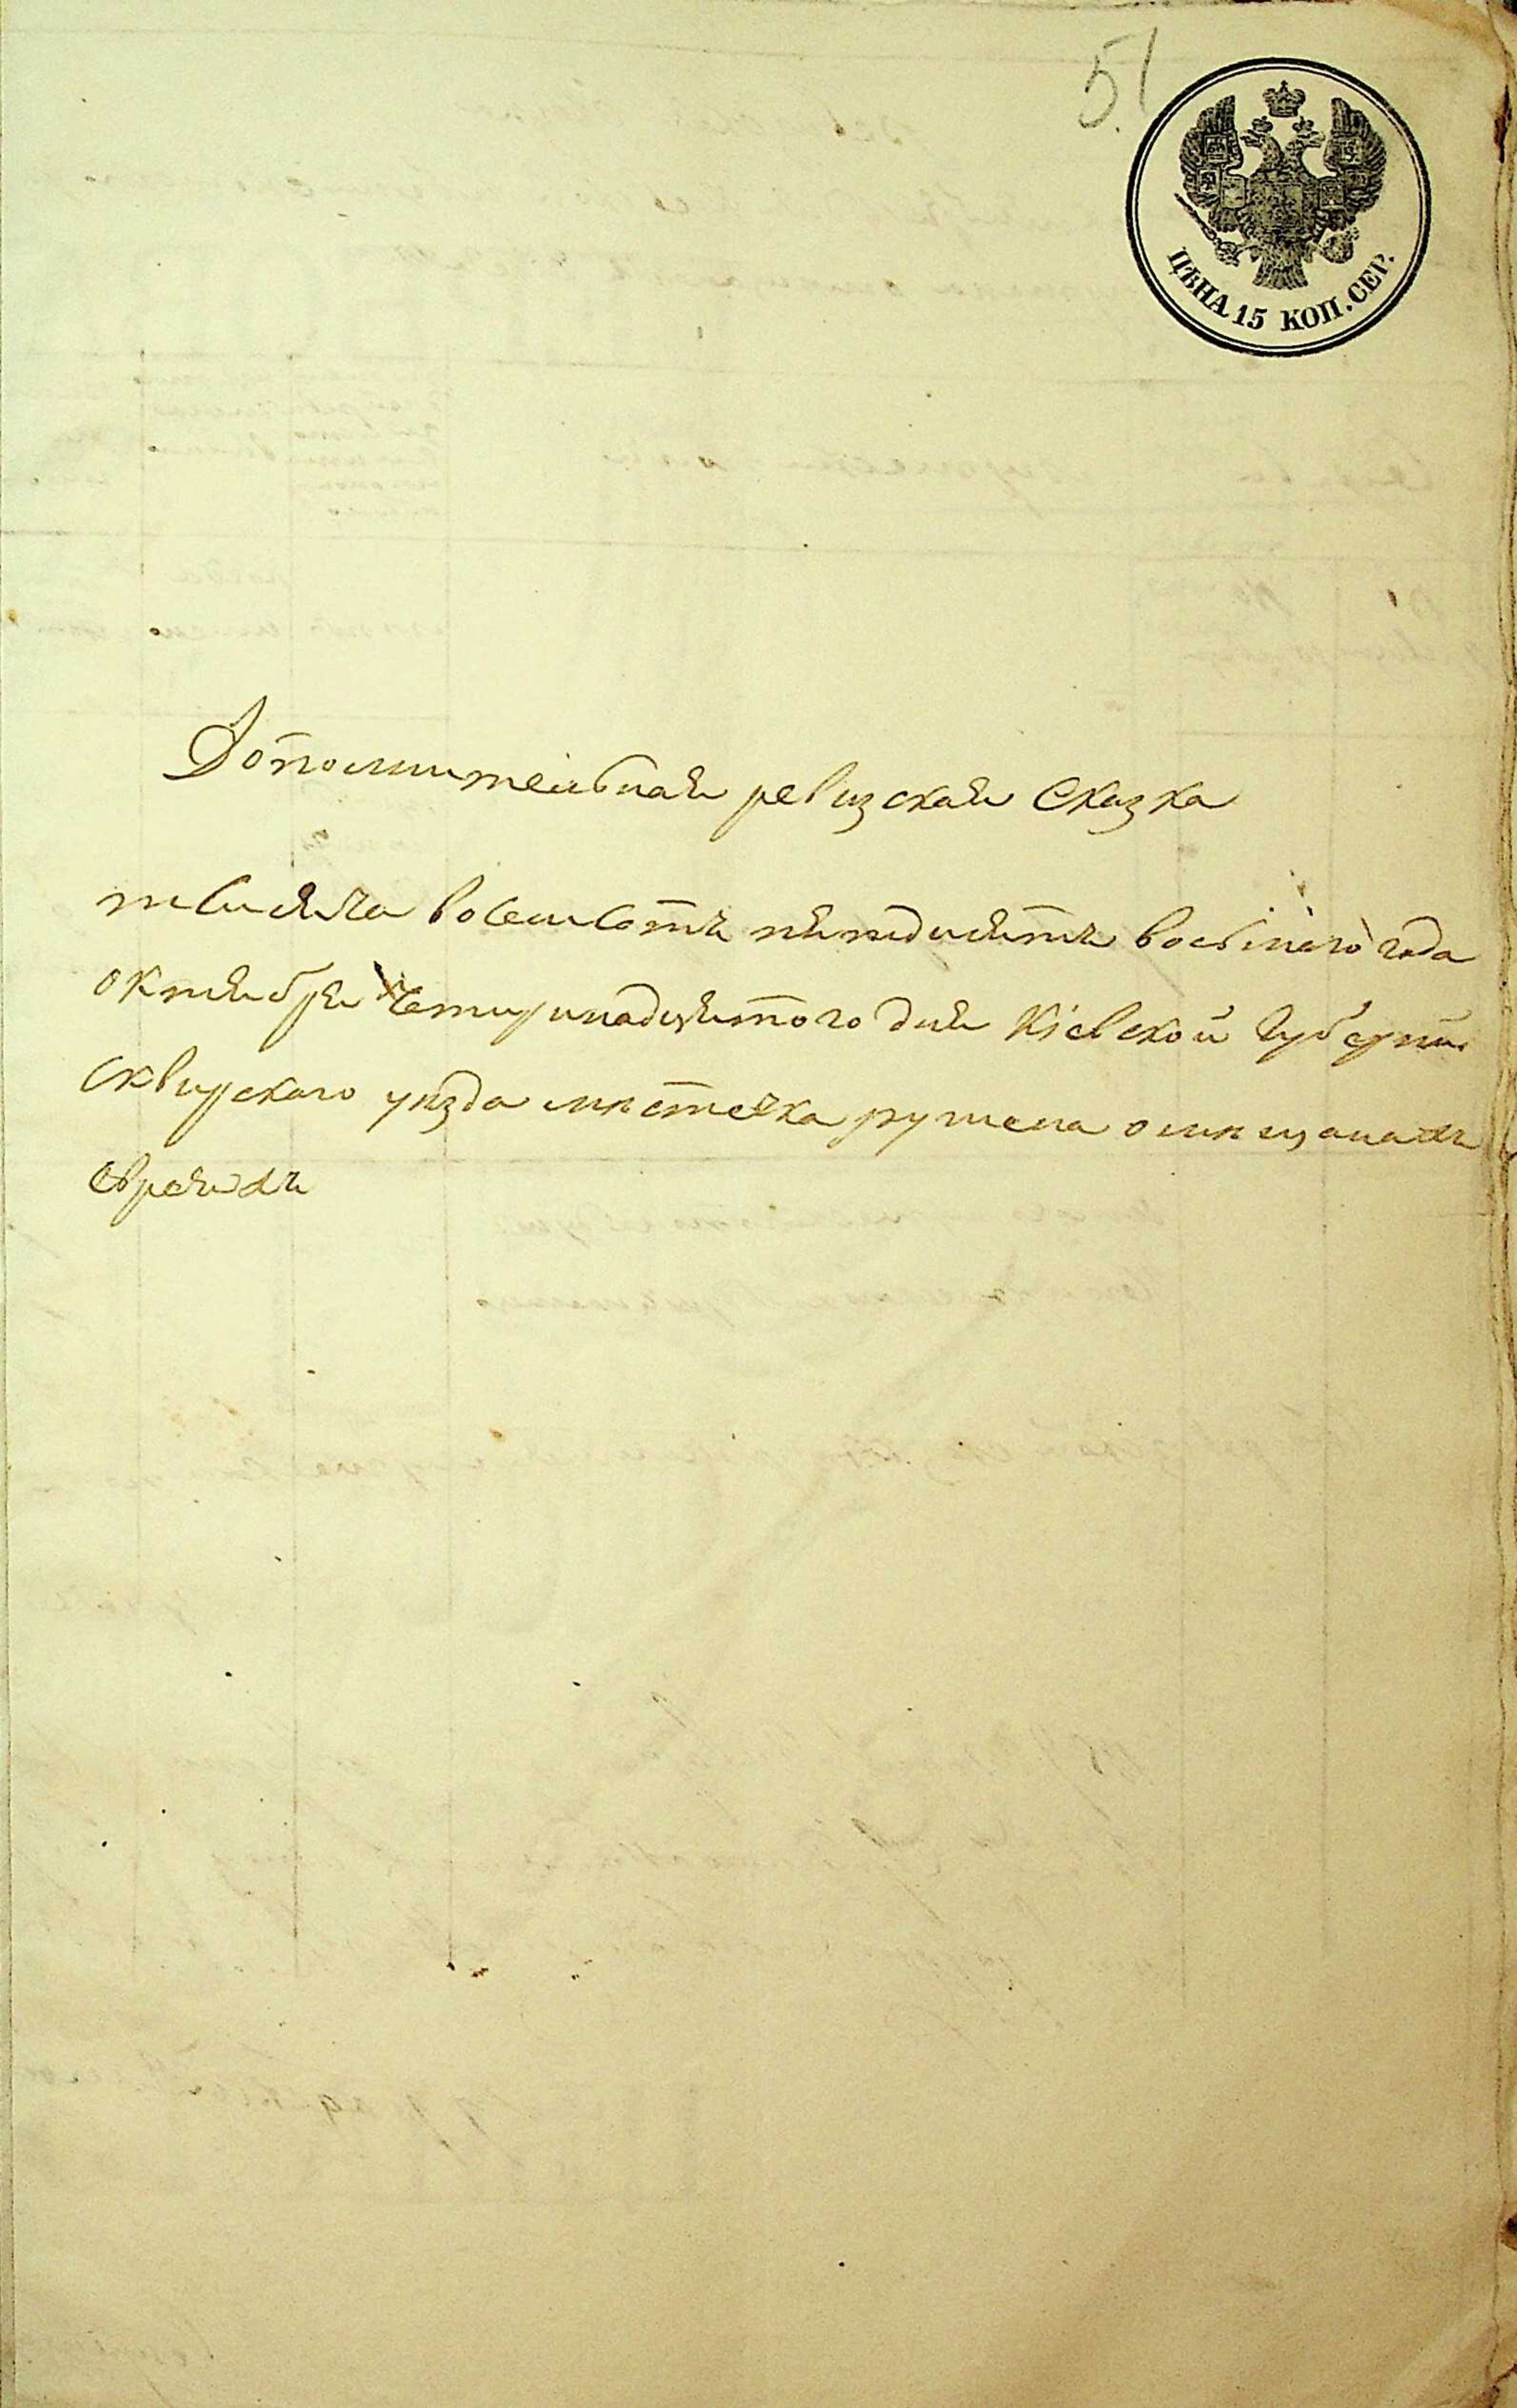 51
ЦѢНА 15 КОП. СЕР.
Дополнительная ревизская Сказка
тысяча восемьсотъ пятьдесятъ восьмаго года
октября Четырнадцятого дня Кіевской Губерніи
Сквирскаго уѣзда мѣстечка ружена о мѣщанахъ
евреяхъ